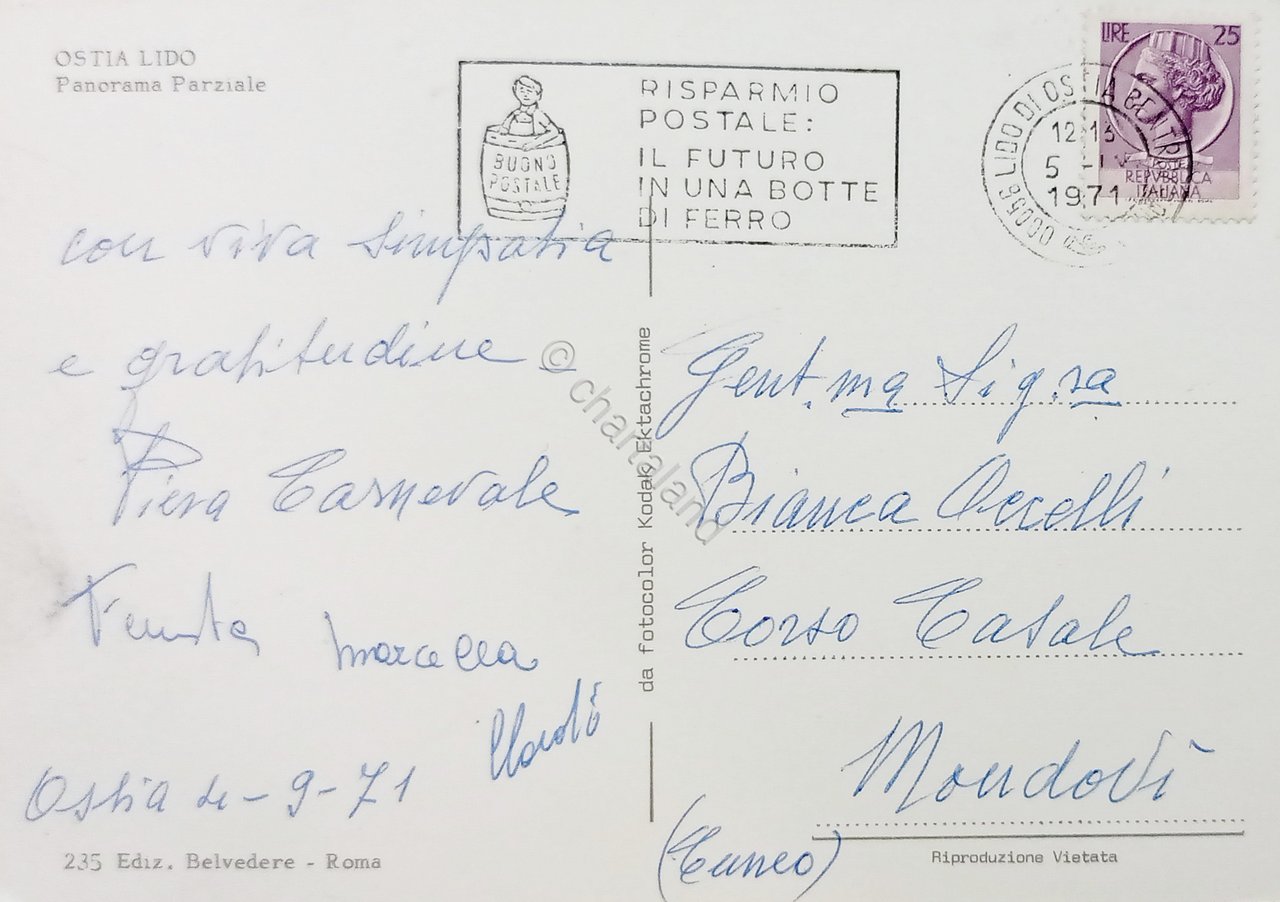 OSTIA LIDO
Panorama Parziale
BUONO
POSTALE
RISPARMIO
POSTALE:
IL FUTURO
IN UNA BOTTE
DI FERRO
LIRE 25
POSTE
REPVBBLICA
ITALIANA
00056 LIDO DI OSTIA
12-13
5
1971
con viva simpatia
e gratitudine
Piera Carnevale
Marcella
Ostia 4-9-71
235 Ediz. Belvedere - Roma
da fotocolor Kodak Ektachrome
© chartaland
Gent.ma Sig.ra
Bianca Occelli
Corso Casale
Mondovì
(Cuneo)
Riproduzione Vietata